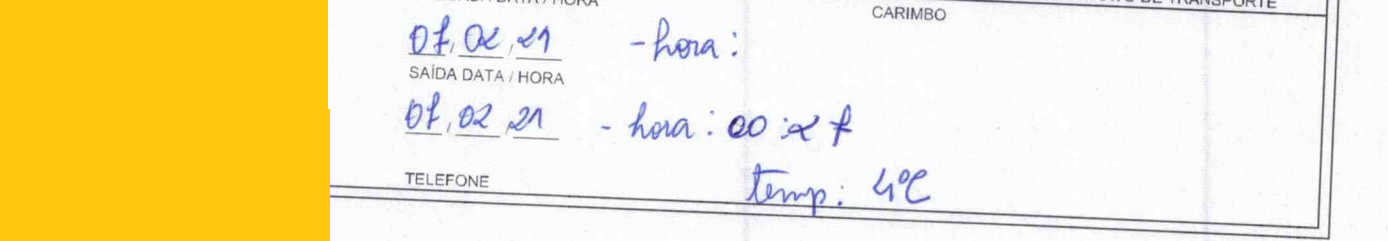 DATA / HORA
DE TRANSPORTE
CARIMBO
07,02,21 - hora:
SAÍDA DATA / HORA
07,02,21 - hora: 00:27
TELEFONE
temp: 4ºC